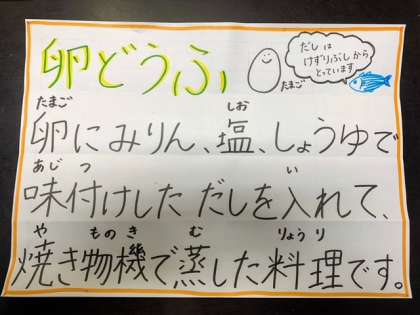 卵どうふ
だしは
けずりぶしから
とっています
たまご
たまご しお
卵にみりん、塩、しょうゆで
あじつ い
味付けした だしを入れて、
や ものき む りょうり
焼き物機で蒸した料理です。